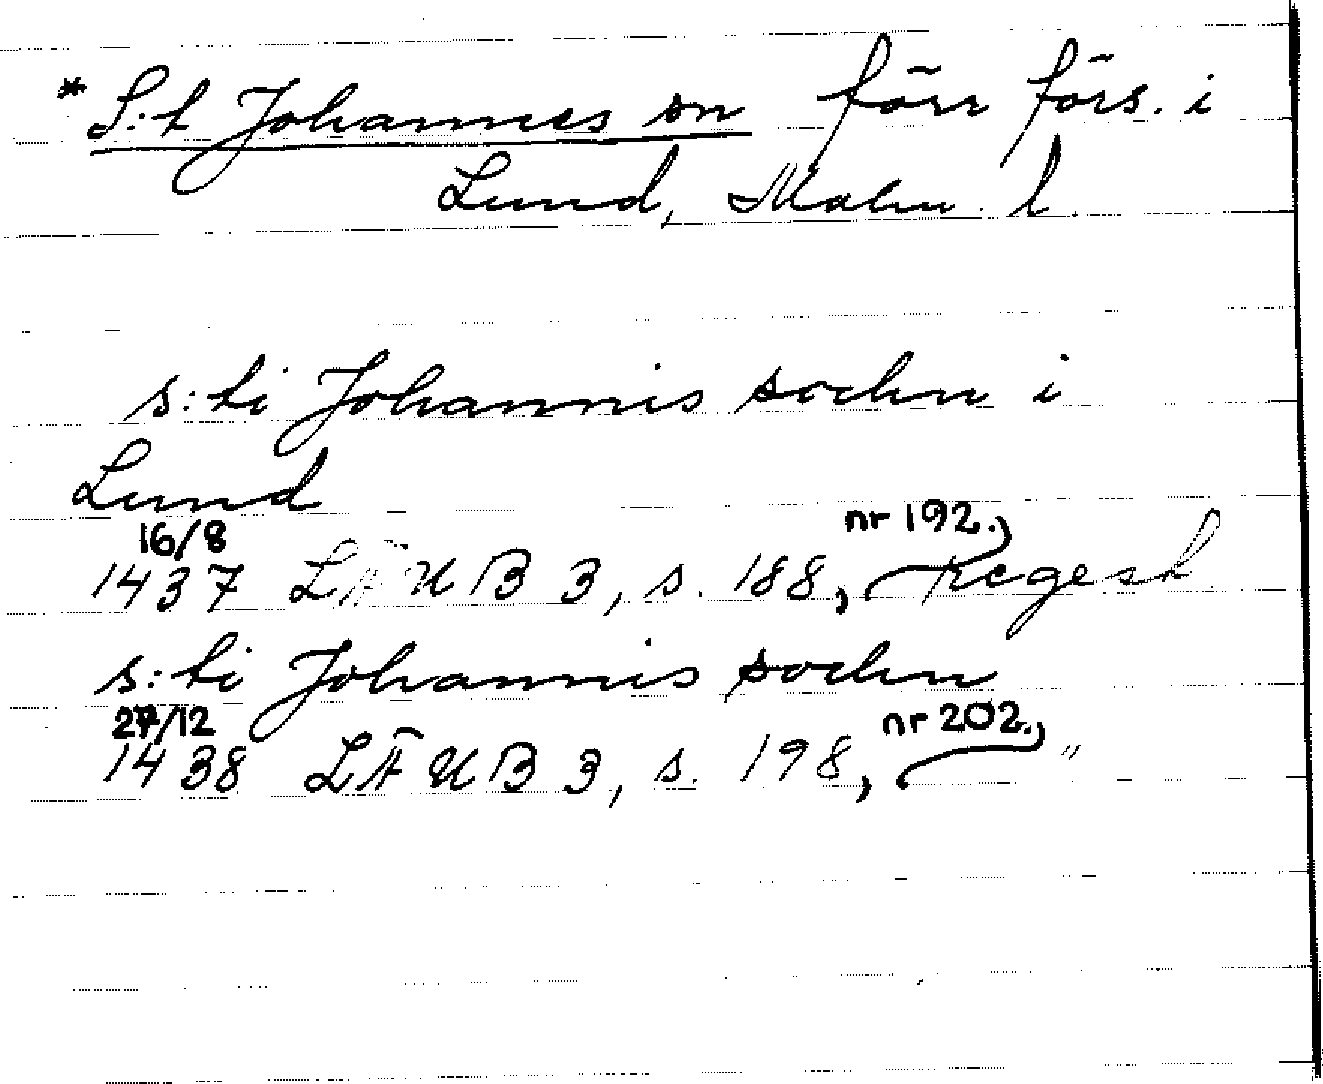 * S:t Johannes sn förr förs. i
Lund, Malm. l.
s:ti Johannis sochn i
Lund
16/8 nr 192.,
1437 LÄUB 3, s. 188, Regest
s:ti Johannis sochn
27/12 nr 202.,
1438 LÄUB 3, s. 198, "